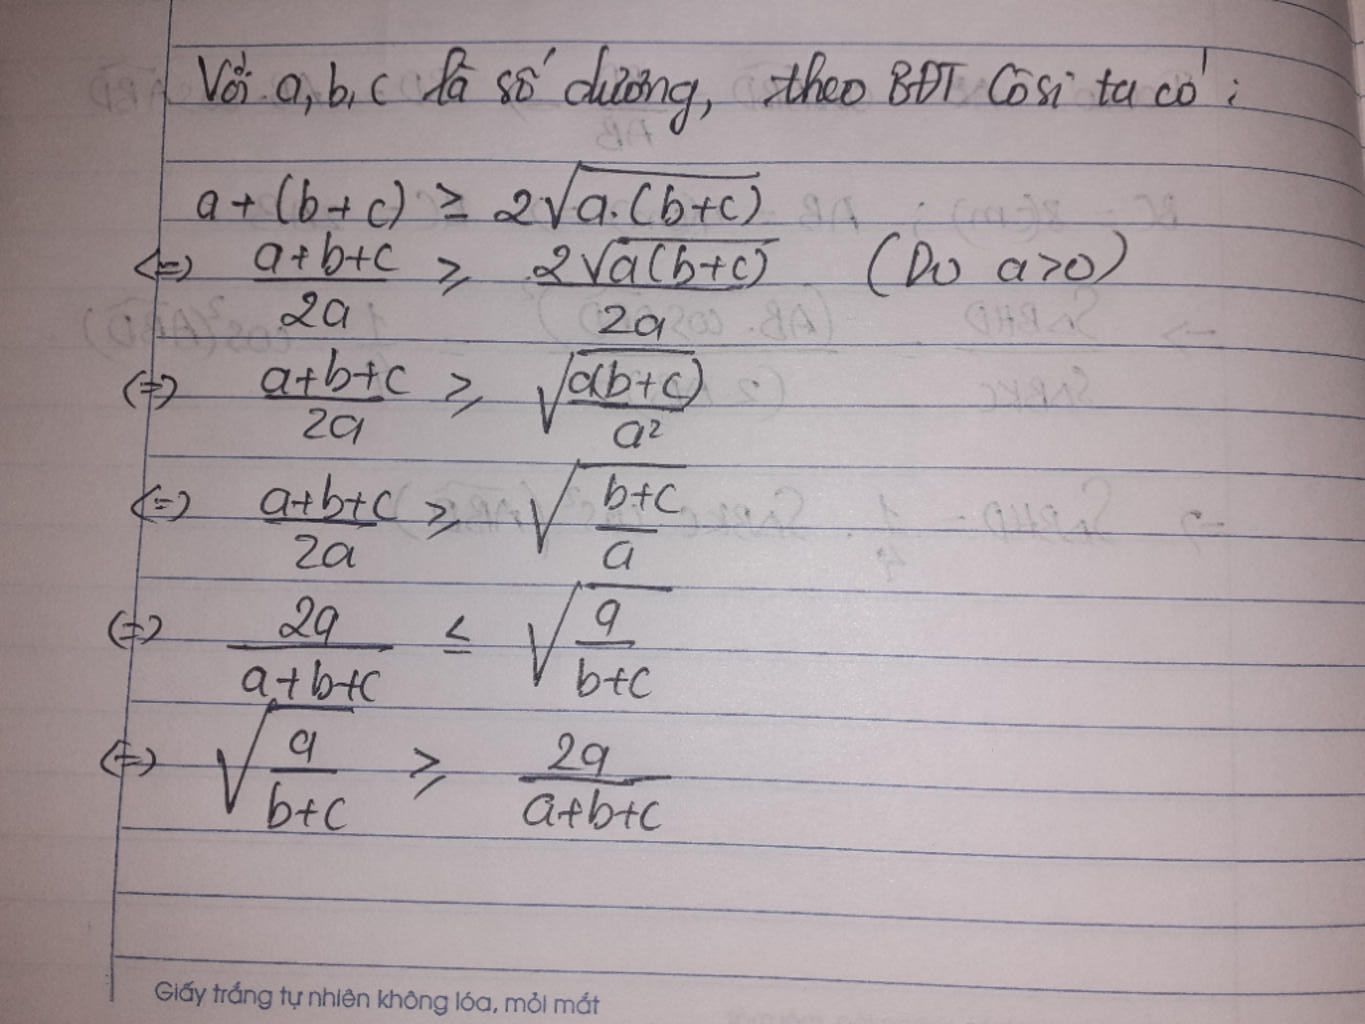 Với a, b, c là số dương, theo BĐT Côsi ta có :
a + (b + c) ≥ 2√(a.(b+c))
(=) (a+b+c)/(2a) ≥ (2√(a(b+c)))/(2a) (Do a>0)
(=) (a+b+c)/(2a) ≥ √((a(b+c))/(a²))
(=) (a+b+c)/(2a) ≥ √((b+c)/a)
(=) (2a)/(a+b+c) ≤ √(a/(b+c))
(=) √(a/(b+c)) ≥ (2a)/(a+b+c)
Giấy trắng tự nhiên không lóa, mỏi mắt